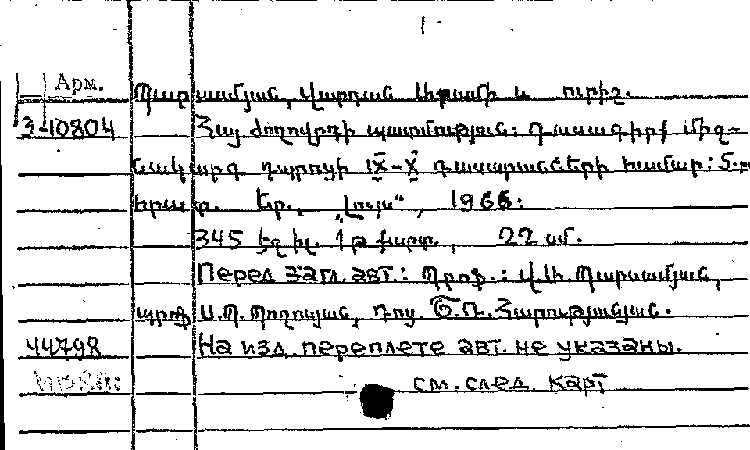 1-
Арм.
Պարսամյան, Վարդան Արամի և ուրիշ.
3-10804 Հայ ժողովրդի պատմություն: Դասագիրք միջ-
նակարգ դպրոցի IX-X դասարանների համար: 5-րդ
հրատ. Եր., „Լույս“, 1966:
345 էջ իլ. 1 թ քարտ., 22 սմ.
Перед загл. авт.: Պրոֆ.: Վ.Ա. Պարսամյան,
պրոֆ Ս.Պ. Պողոսյան, դոց. Շ.Ռ. Հարությունյան.
44798 На изд. переплете авт. не указаны.
см. след. карт